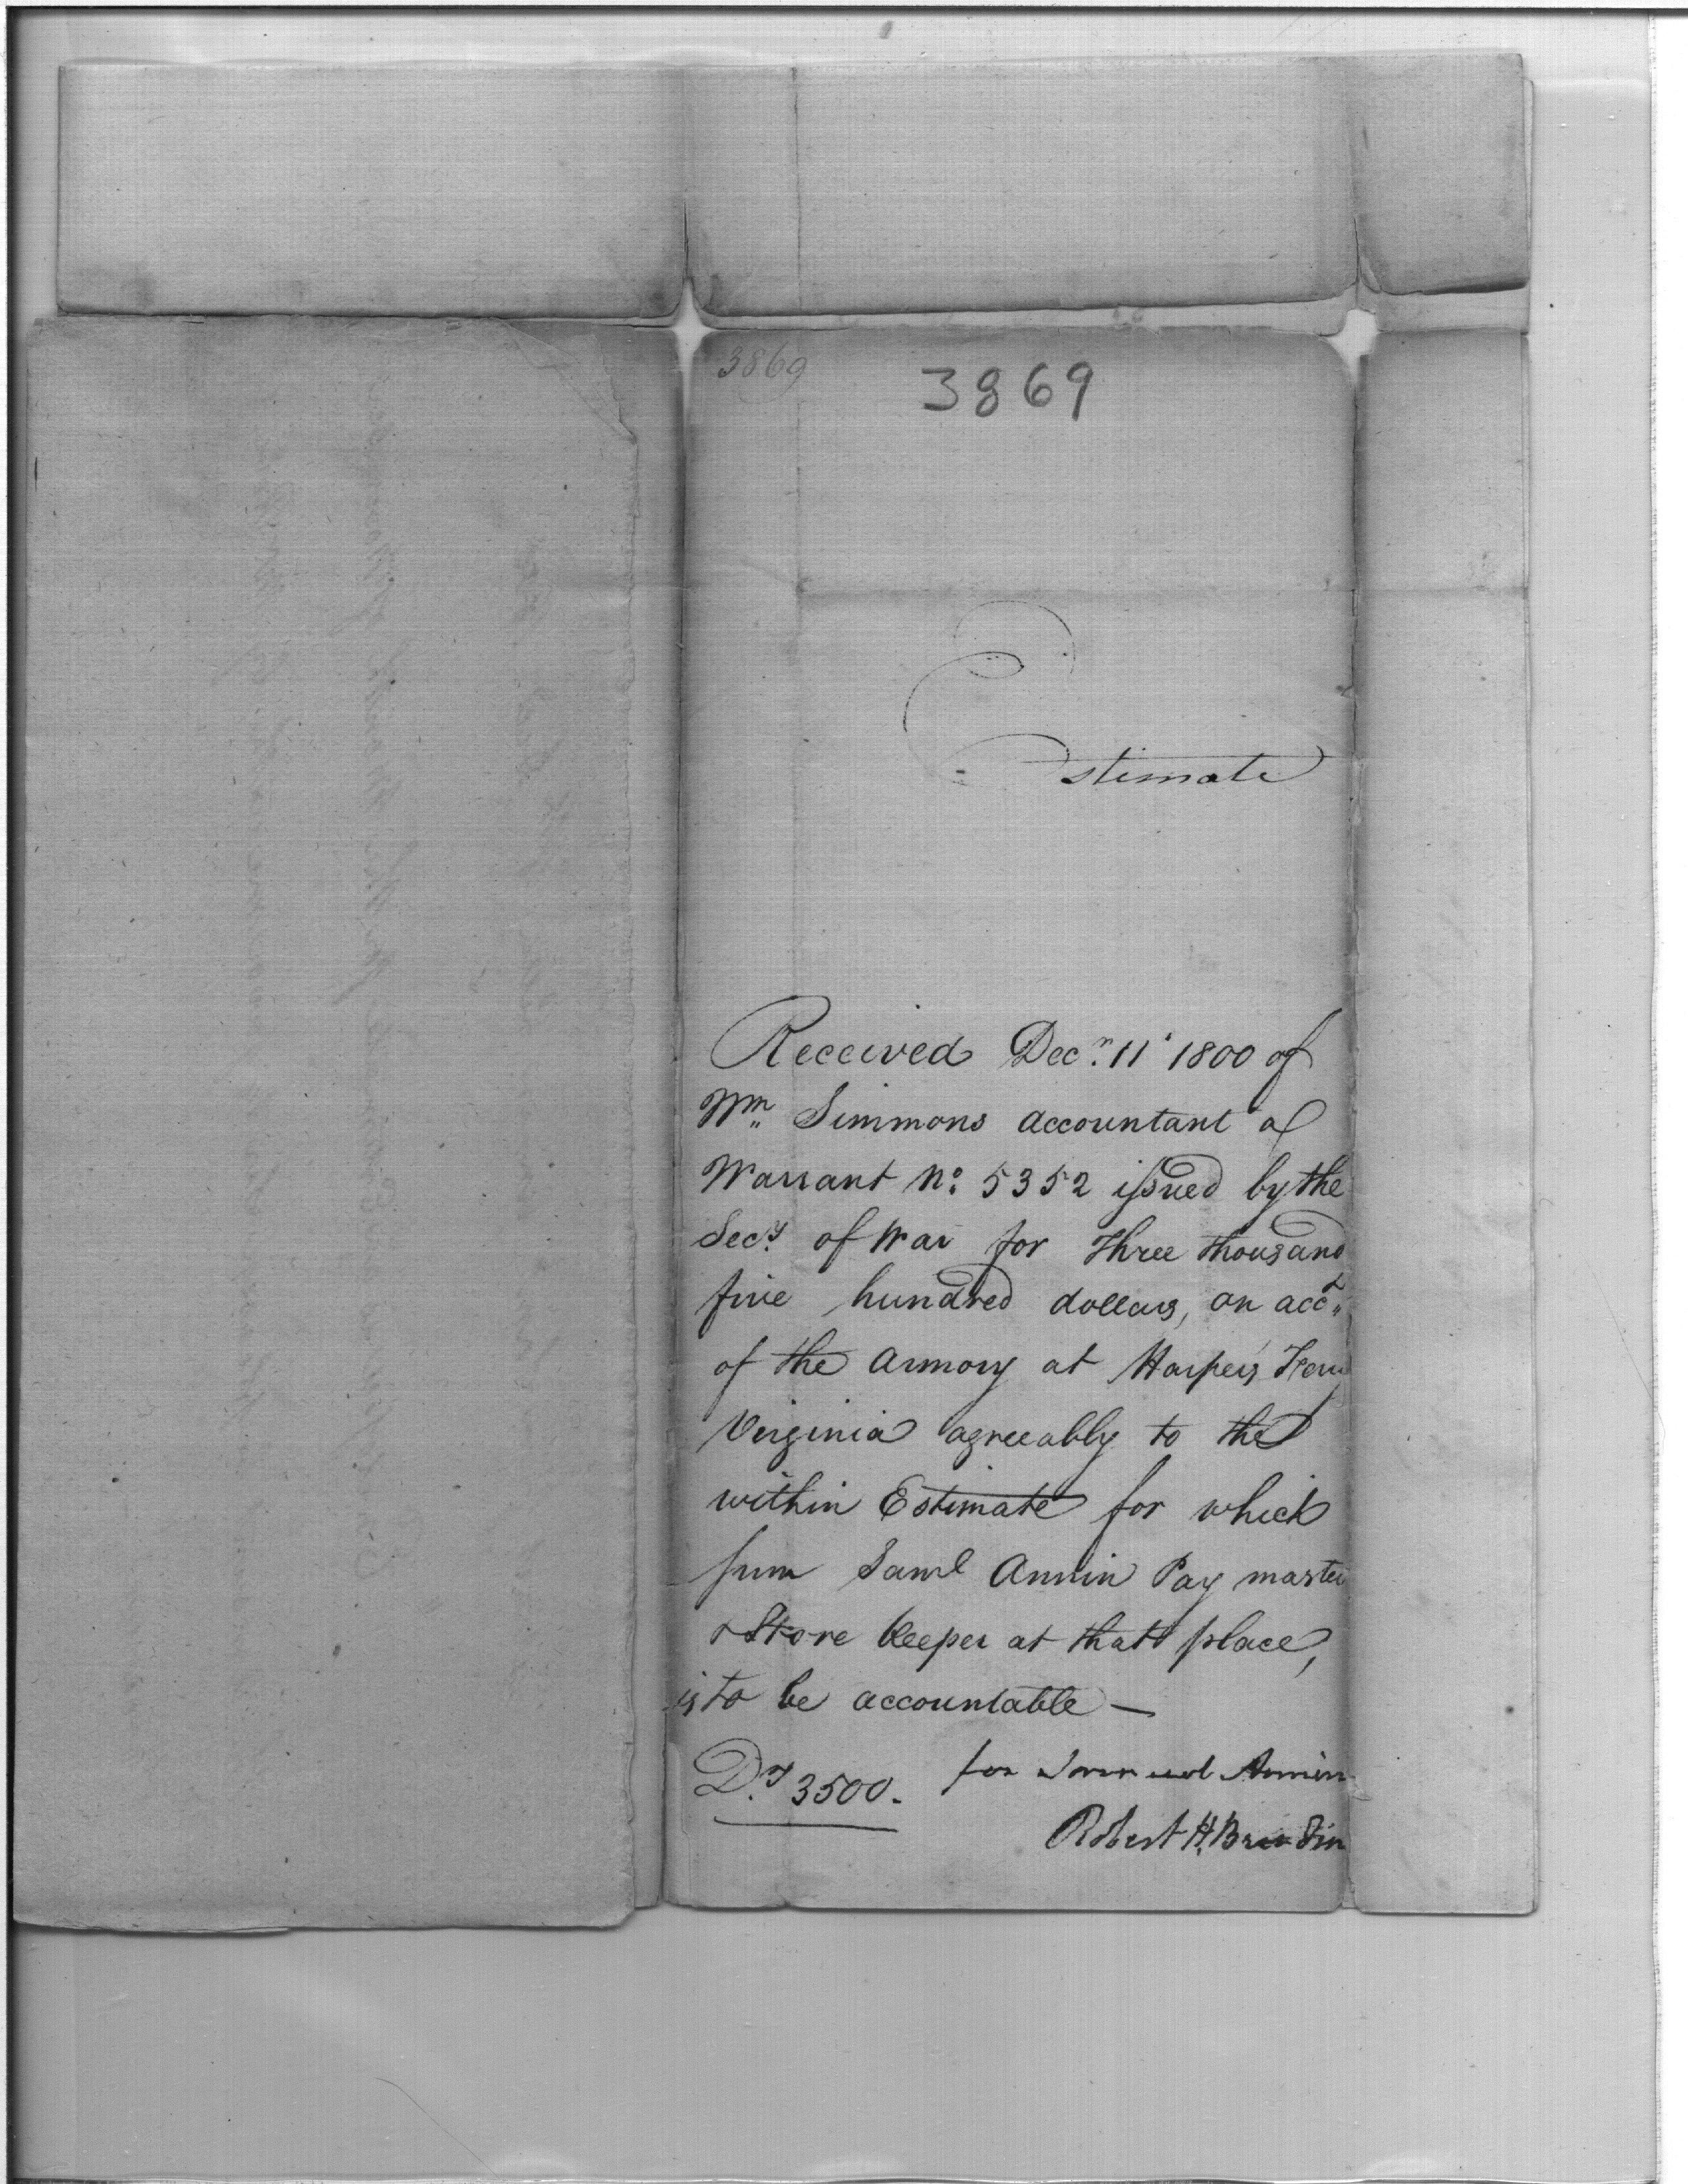 3869
3869
Estimate
Received Decr. 11 1800 of
Wm Simmons accountant a
Warrant No. 5352 issued by the
Secy. of War for Three thousand
five hundred dollars, on acct.
of the Armory at Harpers Ferry
Virginia agreeably to the
within Estimate for which
sum Saml Annin Pay master
& Store keeper at that place,
is to be accountable —
Ds. 3500. for Samuel Annin
Robert H.